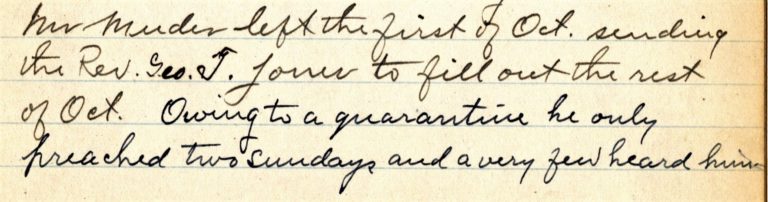 Mr Meeder left the first of Oct. sending
the Rev. Geo. T. Jones to fill out the rest
of Oct. Owing to a quarantine he only
preached two Sundays and a very few heard him